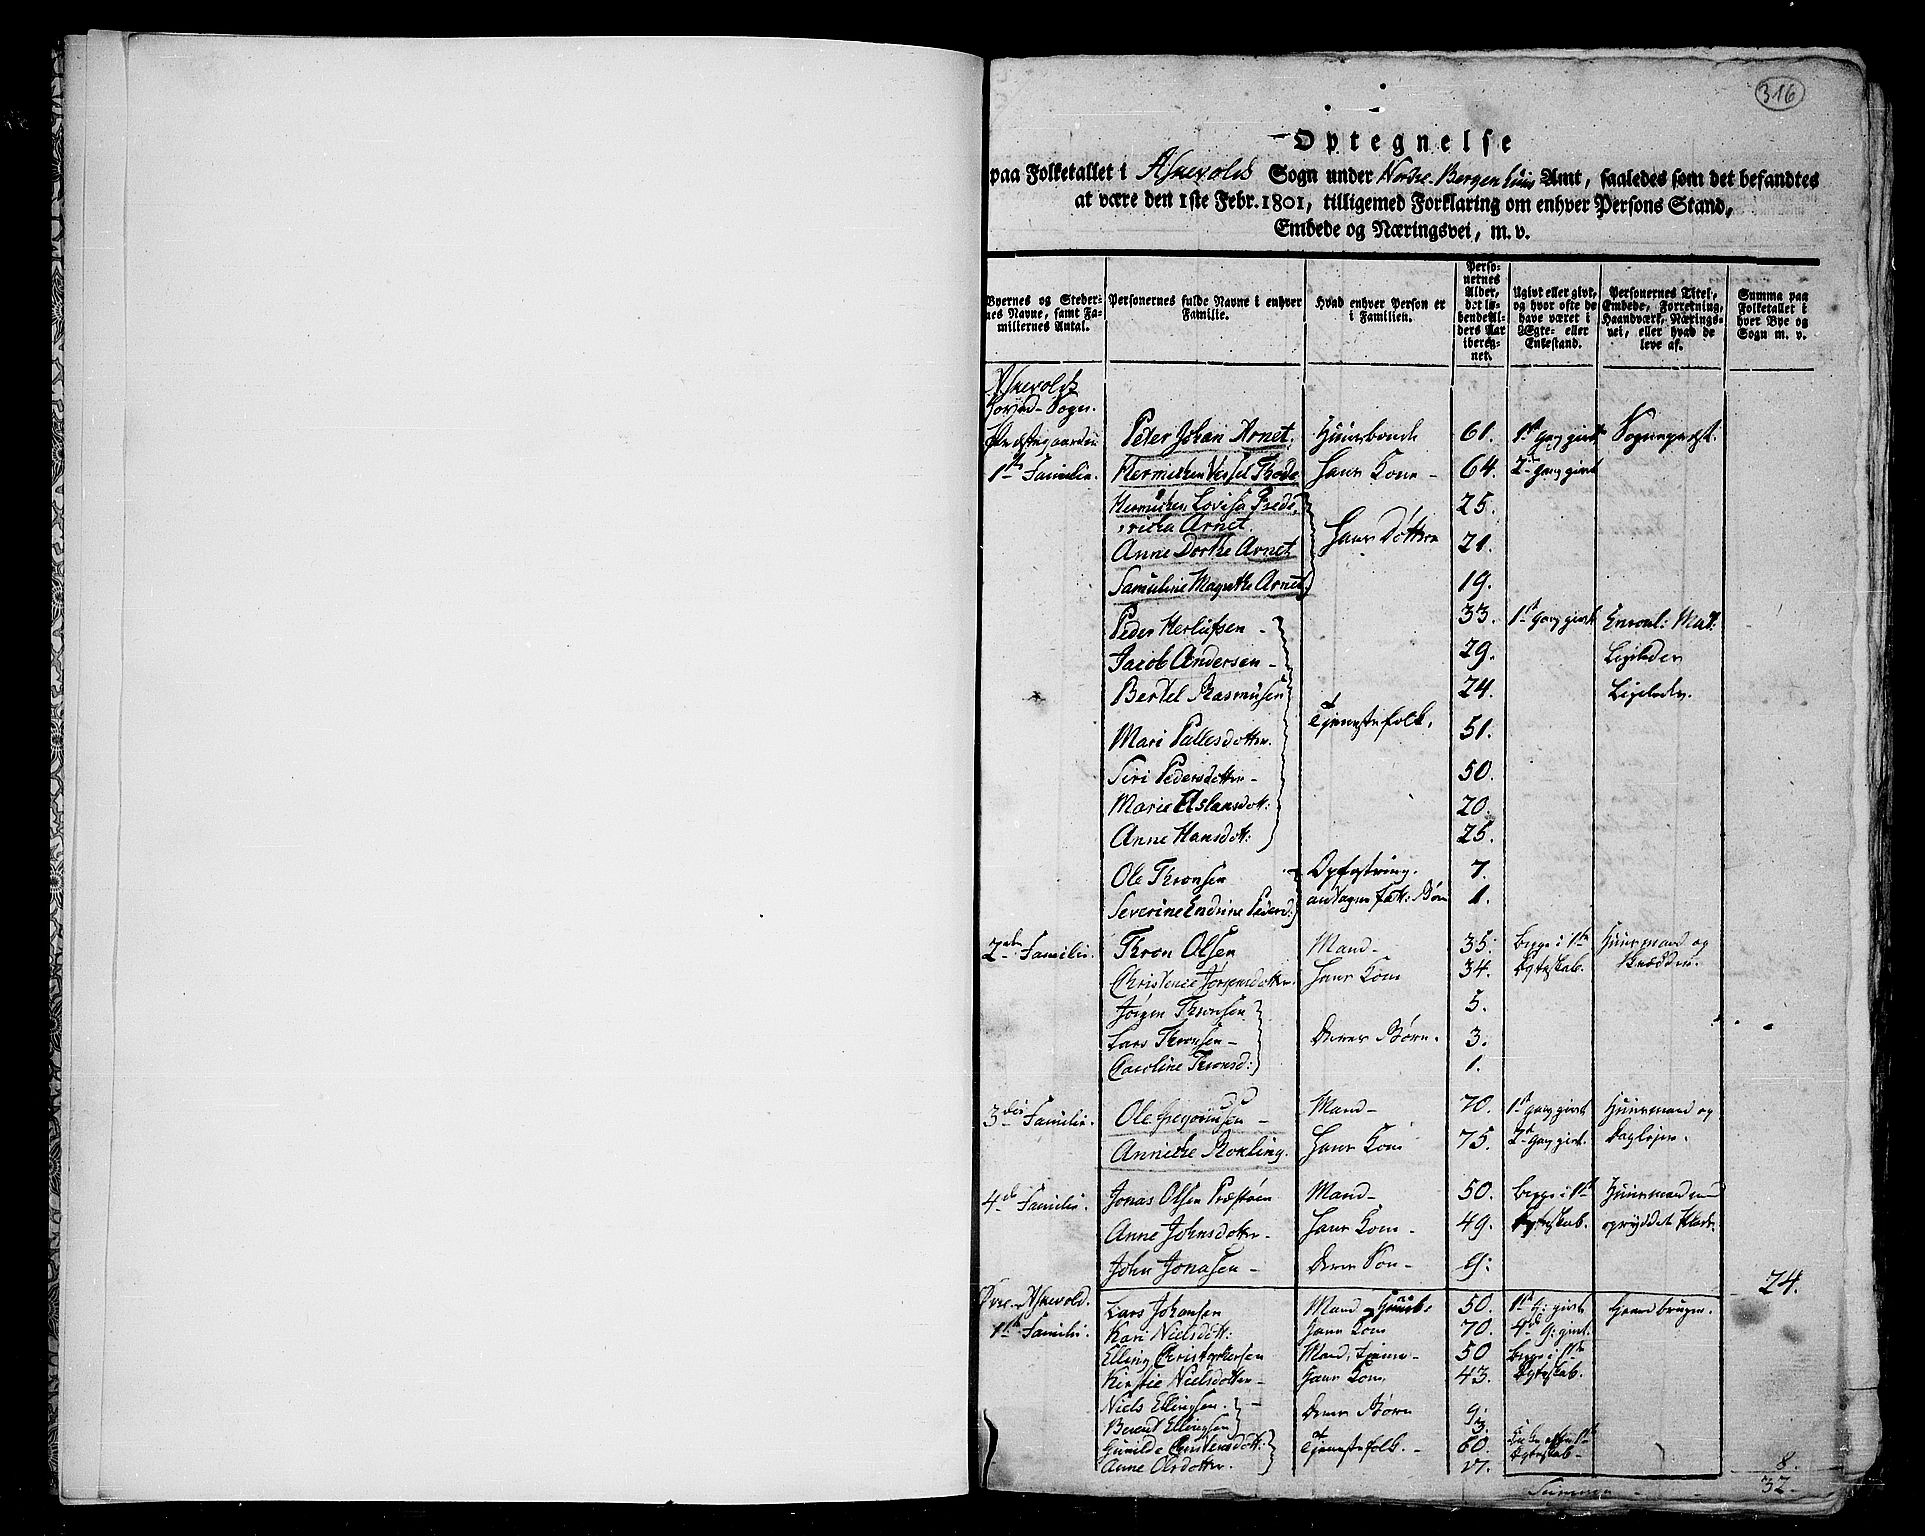 316
Optegnelse
paa Folketallet i Askevolds Sogn under Nordre-Bergenhuus Amt, saaledes som det befandtes
at være den 1ste Febr. 1801, tilligemed Forklaring om enhver Persons Stand,
Embede og Næringsvei, m. v.
Byernes og Steder-
nes Navne, samt Fa-
miliernes Antal.
Personernes fulde Navne i enhver
Familie.
Hvad enhver Person er
i Familien.
Perso-
nernes
Alder,
det lø-
bende Al-
ders Aar
ibereg-
net.
Ugivt eller givt,
og hvor ofte de
have været i
Ægte- eller
Enkestand.
Personernes Titel,
Embede, Forretning,
Haandværk, Nærings-
vei, eller hvad de
leve af.
Summa paa
Folketallet i
hver Bye og
Sogn m. v.
Askevolds
Hoved-Sogn.
Præstegaarden Peder Johan Arnet. Huusbonde 61. 1st Gang givt Sogneprest.
1ste Familie. Hermichen Vessel Thode Hans Kone - 64. 2den Gang givt
Hermichen Lovisa Frede- 25.
ricka Arnet.
Anne Dorthe Arnet Hans Døttre 21.
Samueline Magrethe Arnet 19.
Peder Herlufsen - 33. 1st Gang givt Enroul: Mat:
Jacob Andersen - 29. Ligeledes
Bertel Rasmusen 24. Ligeledes.
Mari Pallesdotter. Tjenestefolk. 51.
Siri Pedersdotter - 50.
Marie Aslaksdot: 20.
Anne Hansdot: 25.
Ole Thronsen Opfostring. 7.
Severine Endrine Pedersd: antagne fatt: Børn 1.
2den Familie. Thron Olsen Mand - 35. Begge i 1ste Huusmand og
Christence Jørgensdotter. Hans Kone 34. Ægteskab. Skrædder.
Jørgen Thronsen 5.
Lars Thronsen - Deres Børn. 3.
Caroline Thronsd: 1.
3die Familie. Ole Gregoriusen - Mand - 70. 1st Gang givt Huusmand og
Anniche Rokling. Hans Kone 75. 2d Gang givt. Dagleier.
4de Familie. Jonas Olsen Præstøen Mand - 50. Begge i 1ste Huusmand med
Anne Johnsdotter - Hans Kone - 49. Ægteskab. opryddet Plads.
John Jonasen - Deres Søn - 9.
24.
Øvre-Askevold. Lars Johansen Mand og Huusb: 50. 1st G: givt Gaardbruger.
1ste Familie. Kari Nielsdot: Hans Kone 70. 4de G: givt.
Elling Christophersen Mand, tjener - 50 Begge i 1ste
Kirstie Nielsdotter - Hans Kone 43. Ægteskab.
Niels Ellingsen. - Deres Børn 9.
Berent Ellingsen 3.
Gunilde Christensdot: Tjenestefolk. - 60. Enke efter 1ste
Anne Olsdotter. Ægteskab -
8.
Summa - 32 -